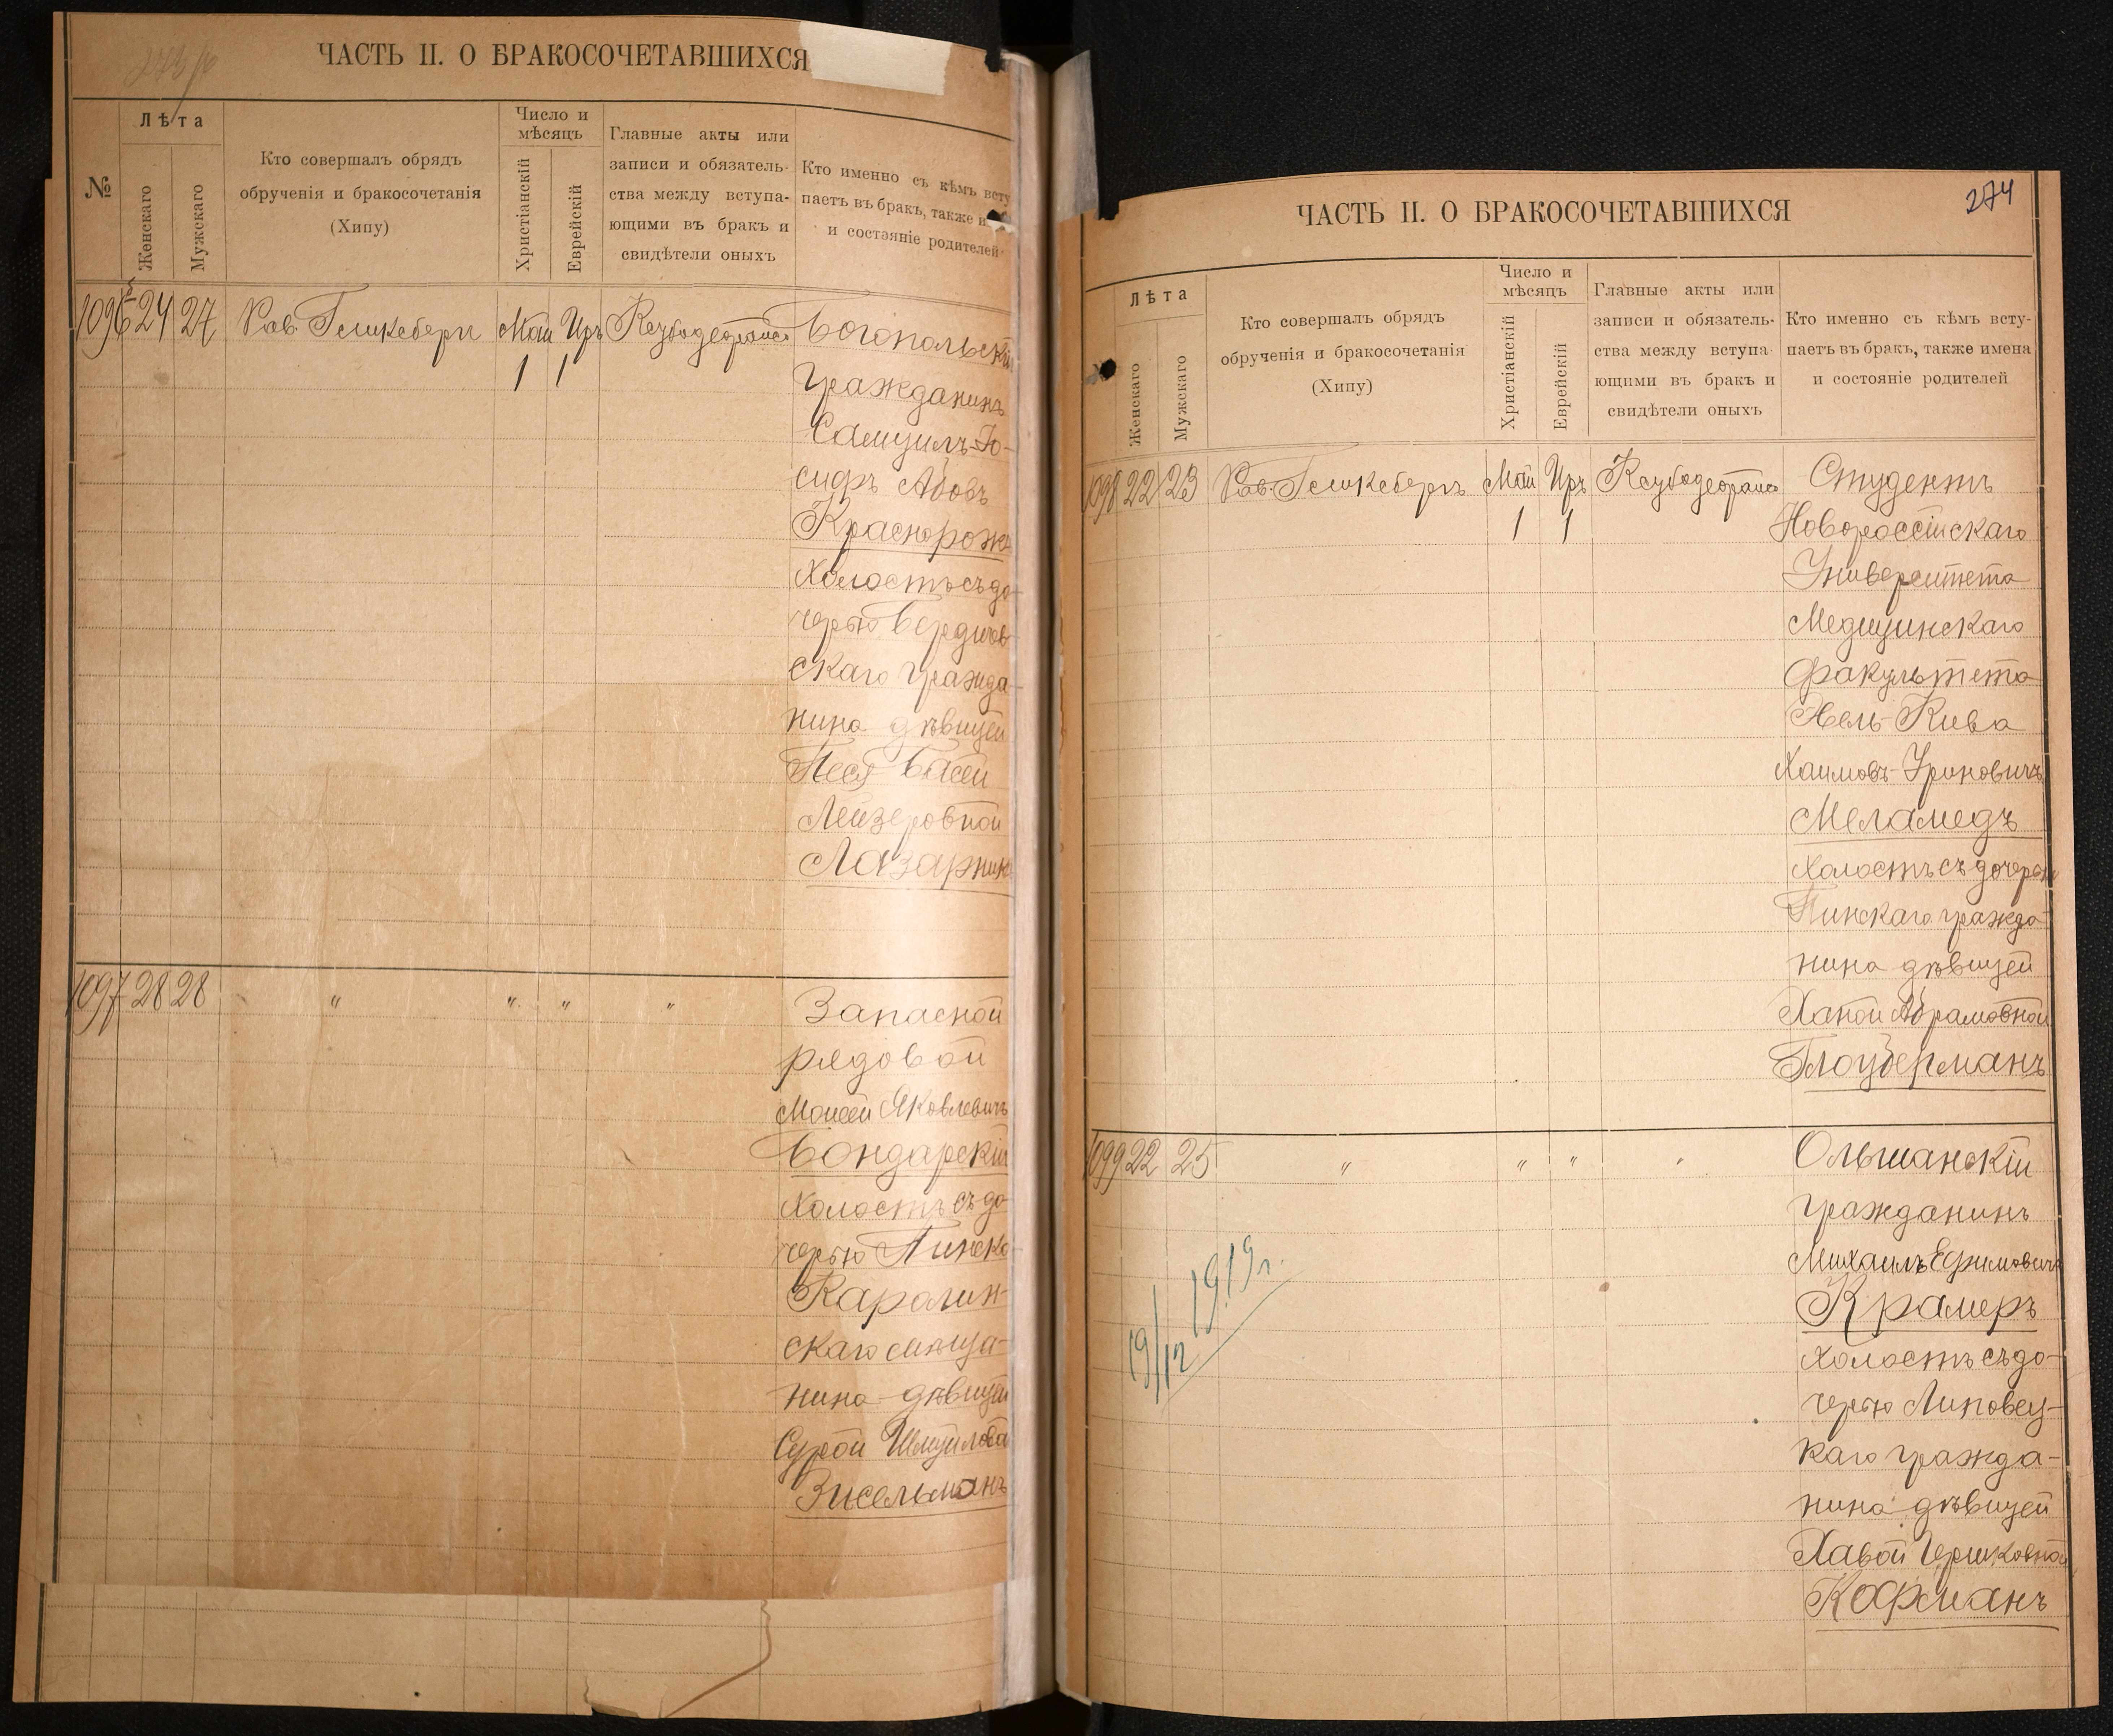 ЧАСТЬ II. О БРАКОСОЧЕТАВШИХСЯ
№
Лѣта
Женскаго
Мужскаго
Кто совершалъ обрядъ
обрученія и бракосочетанія
(Хипу)
Число и
мѣсяцъ
Христіанскій
Еврейскій
Главные акты или
записи и обязатель-
ства между вступа-
ющими въ бракъ и
свидѣтели оныхъ
Кто именно съ кѣмъ всту
паетъ въ бракъ, также и
и состояніе родителей
1096 24 27 Рав. Гликсбергъ Май Иръ Кеубодеорайсо Богопольскій
1 1 гражданинъ
Самуилъ-Іо-
сифъ Абовъ
Краснорож
холостъ съ до-
черью Бердичев-
скаго гражда-
нина дѣвицей
Песя Басей
Лейзеровной
Лазарник
1097 28 28 " " " " Запасной
рядовой
Моисей Яковлевичъ
Бондарскій
холостъ съ до-
черью Пинско-
Каролин-
скаго мѣща-
нина дѣвицей
Сурой Шмулов
Зисельманъ
ЧАСТЬ II. О БРАКОСОЧЕТАВШИХСЯ
274
Лѣта
Женскаго
Мужскаго
Кто совершалъ обрядъ
обрученія и бракосочетанія
(Хипу)
Число и
мѣсяцъ
Христіанскій
Еврейскій
Главные акты или
записи и обязатель-
ства между вступа-
ющими въ бракъ и
свидѣтели оныхъ
Кто именно съ кѣмъ всту-
паетъ въ бракъ, также имена
и состояніе родителей
1098 22 23 Рав. Гликсбергъ Май Иръ Кеубодеорайсо Студентъ
1 1 Новороссійскаго
Университета
Медицинскаго
факультета
Хель-Кива
Хаимовъ-Уриновичъ
Меламедъ
холостъ съ дочерью
Пинскаго гражда-
нина дѣвицей
Ханой Абрамовной
Глоуберманъ
1099 22 25 " " " " Ольшанскій
гражданинъ
Михаилъ Ефимовичъ
Крамеръ
холостъ съ до-
черью Липовец-
каго гражда-
нина дѣвицей
Хавой Гершковной
Кофманъ
19/12 1919 г.